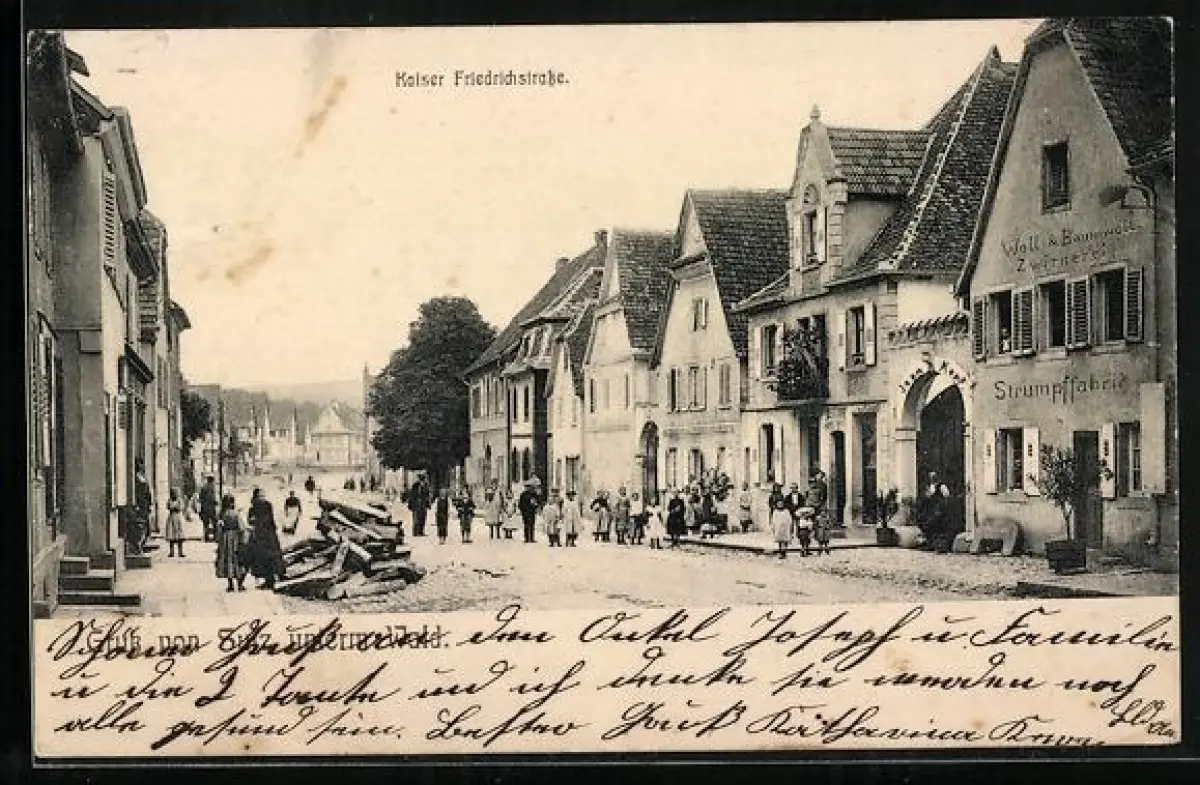 Kaiser Friedrichstraße.
Woll- & Baumwoll-
Zwirnerei
Strumpffabrik
Gruß von Sulz unterm Wald.
Schönen Gruß an den Onkel Joseph u. Familie
u die 2 Tante und ich denke sie werden noch
alle gesund sein. Bester Gruß Katharina